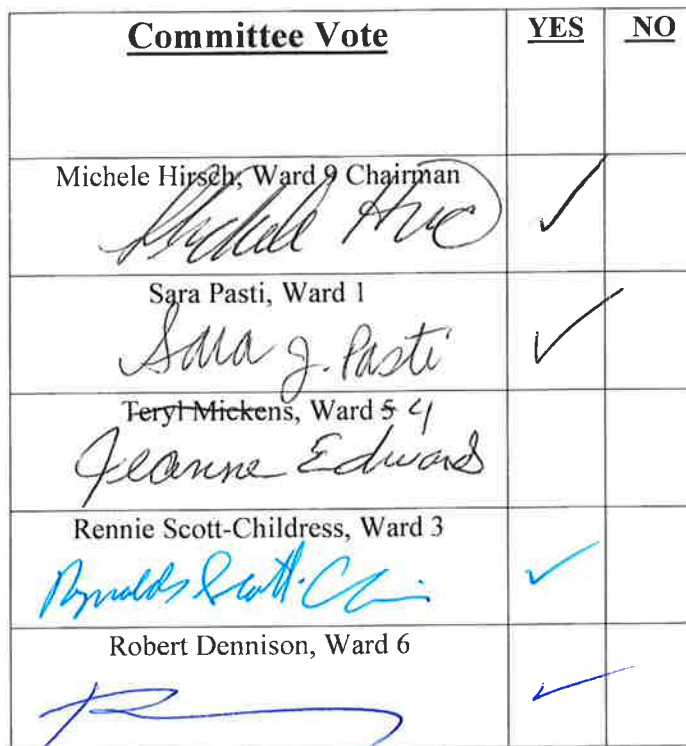 Committee Vote YES NO
Michele Hirsch, Ward 9 Chairman
Michele Hirsc ✓
Sara Pasti, Ward 1
Sara J. Pasti ✓
Teryl Mickens, Ward 5 4
Jeanne Edwards
Rennie Scott-Childress, Ward 3
Reynolds Scott-Chi ✓
Robert Dennison, Ward 6
✓